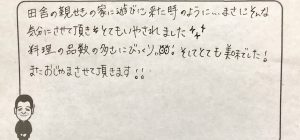 田舎の親せきの家に遊びに来た時のように…まさにそんな
気分にさせて頂きとてもいやされました
料理の品数の多さにびっくり!! そしてとても美味でした!
またおじゃまさせて頂きます!!